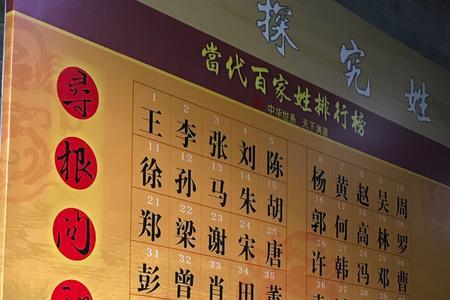 探究姓
當代百家姓排行榜
中华世系 天下渊源
尋根问
1 2 3 4 5 6 7 8 9 10
王 李 张 刘 陈 杨 黄 赵 吴 周
11 12 13 14 15 16 17 18 19 20
徐 孙 马 朱 胡 郭 何 高 林 罗
21 22 23 24 25 26 27 28 29 30
郑 梁 谢 宋 唐 许 韩 冯 邓 曹
31 32 33 34 35
彭 曾 肖 田 董